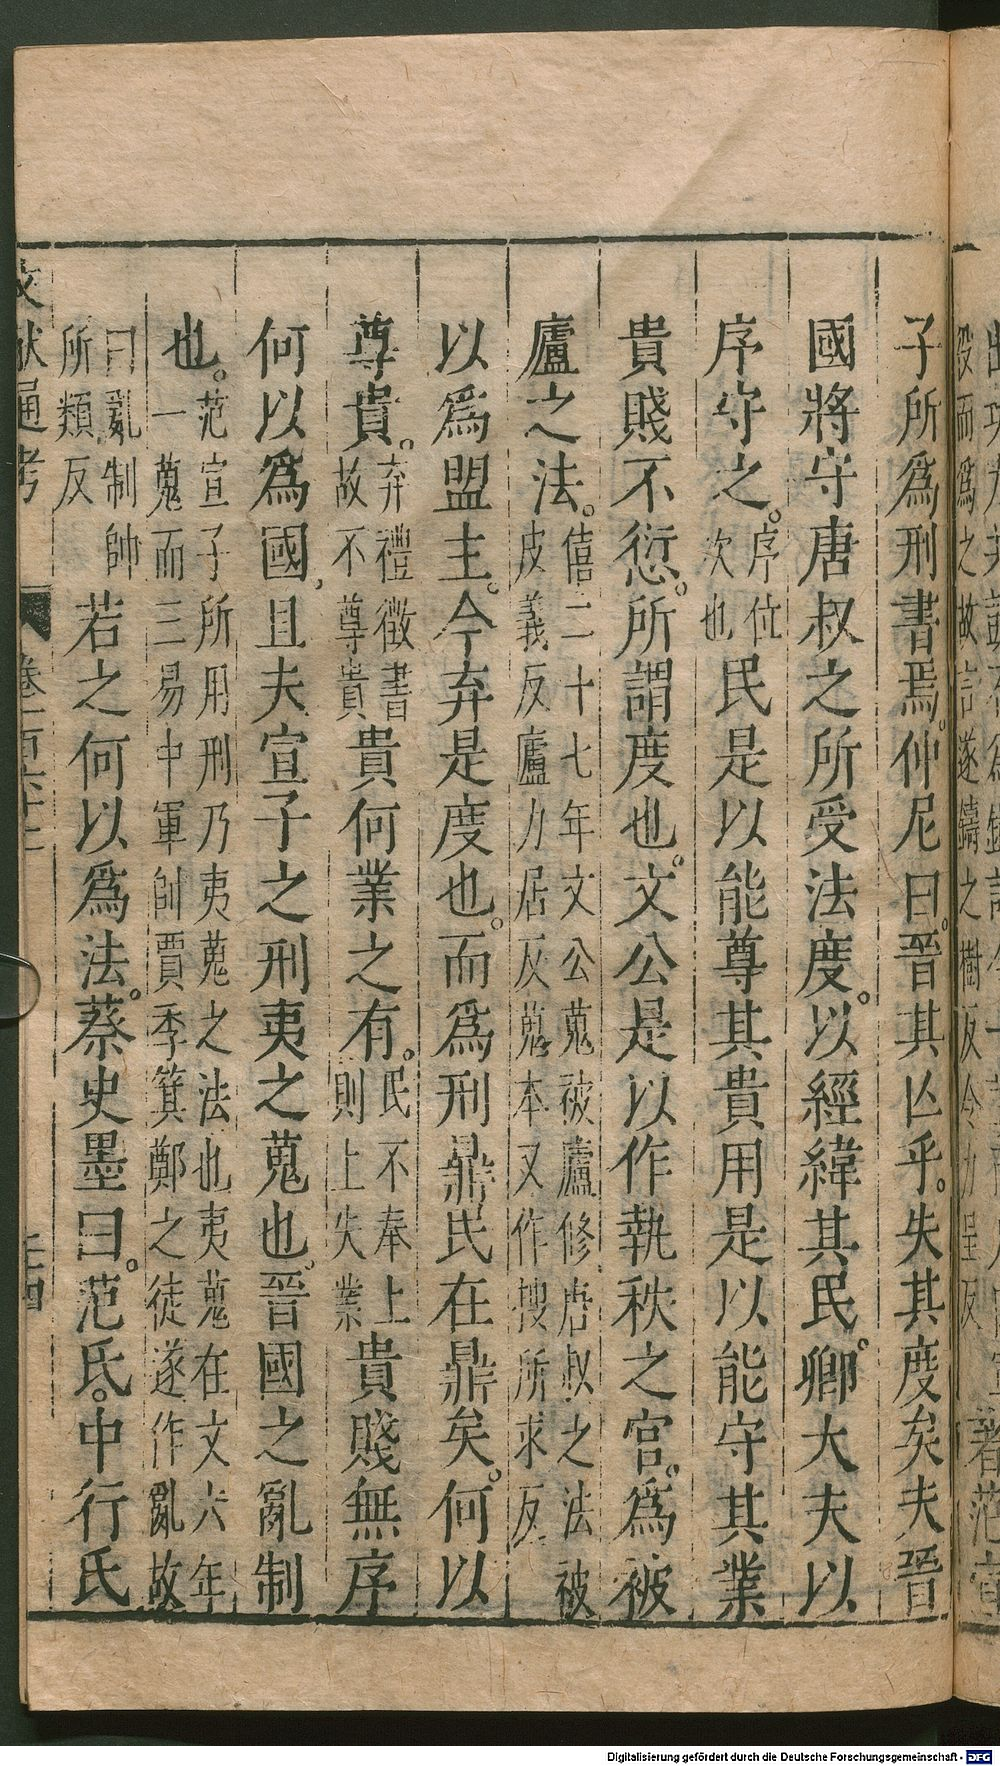 子所爲刑書焉。仲尼曰。晉其亡乎。失其度矣夫晉
國將守唐叔之所受法度。以經緯其民。卿大夫以
序守之。序位
次也
民是以能尊其貴用是以能守其業
貴賤不愆。所謂度也。文公是以作執秩之官。爲被
廬之法。僖二十七年文公蒐被廬修唐叔之法被
皮義反廬力居反蒐本又作搜所求反
以爲盟主。今弃是度也。而爲刑鼎民在鼎矣。何以
尊貴。弃禮徵書
故不尊貴
貴何業之有。民不奉上
則上失業
貴賤無序
何以爲國。且夫宣子之刑夷之蒐也。晉國之亂制
也。范宣子所用刑乃夷蒐之法也夷蒐在文六年
一蒐而三易中軍帥賈季箕鄭之徒遂作亂故
曰亂制帥
所類反
若之何以爲法。蔡史墨曰。范氏。中行氏
文獻通考
Digitalisierung gefördert durch die Deutsche Forschungsgemeinschaft - DFG